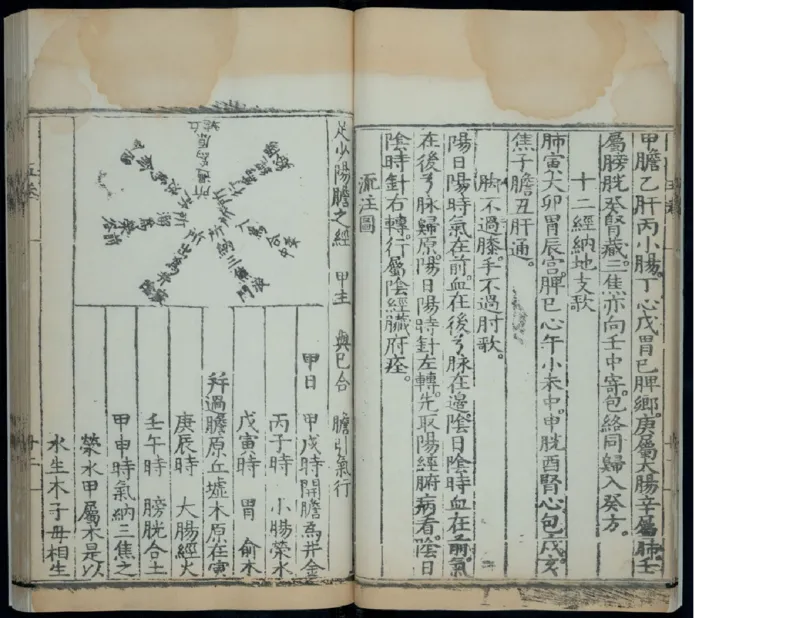 甲膽乙肝丙小腸。丁心戊胃巳脾鄉。庚屬大腸辛屬肺。壬
屬膀胱癸腎藏。三焦亦向壬中寄。包絡同歸入癸方。
十二經納地支歌
肺寅大卯胃辰宮。脾巳心午小未中。申胱酉腎心包戌。亥
焦子膽丑肝通。
脚不過膝。手不过肘歌。
陽日陽時氣在前。血在後兮脉在邊。陰日陰時血在前。氣
在後兮脉歸原。陽日陽時針左轉。先取陽經腑病看。陰日
陰時針右轉。行屬陰經臟府痊。
流注圖
足少陽膽之經 甲主 與巳合 膽引氣行
甲日 甲戌時開膽為井金
丙子時 小腸滎水
戊寅時 胃 俞木
并過膽原丘墟木原在寅
庚辰時 大腸經火
壬午時 膀胱合土
甲申時氣納三焦之
滎水甲屬木是以
水生木子母相生